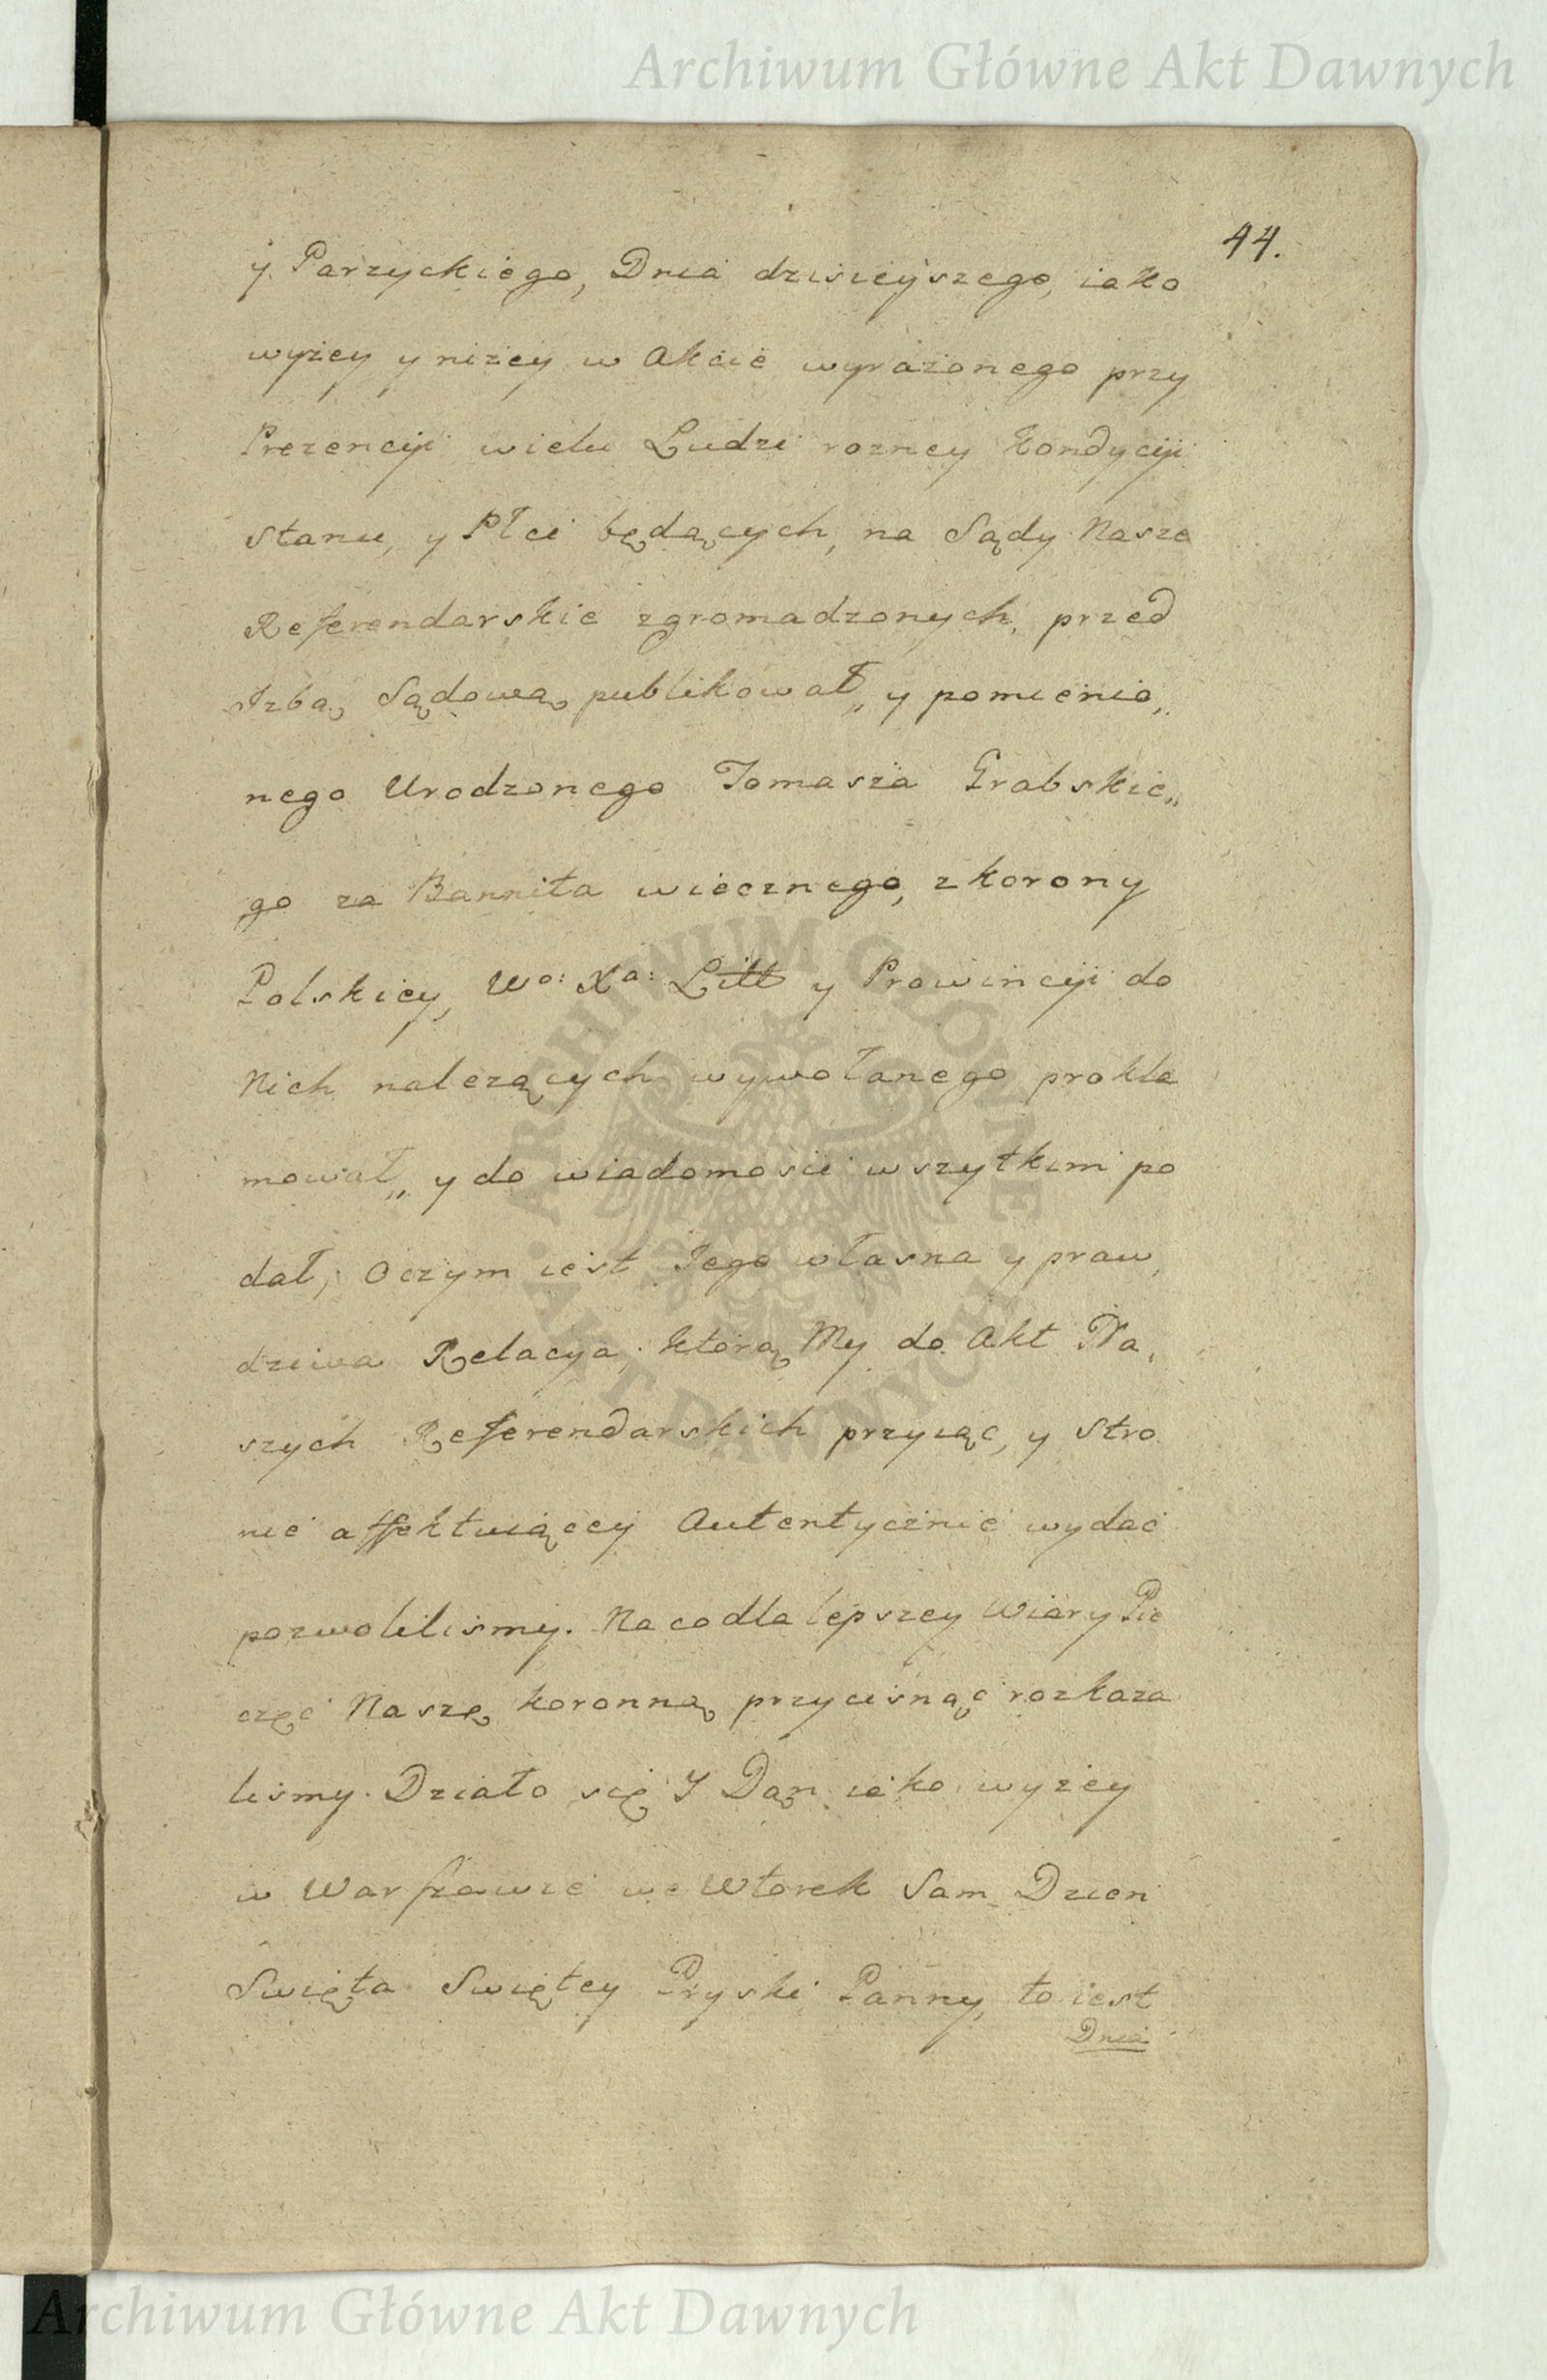 Archiwum Główne Akt Dawnych
44.
y Parzyckiego, Dnia dzisieyszego, iako
wyżey y niżey w Akcie wyrażonego przy
Prezencyi wielu Ludzi rozney Kondycyi
Stanu, y Płci będących, na Sądy Nasze
Referendarskie zgromadzonych, przed
Izbą Sądową publikował„ y pomienio„
nego Urodzonego Tomasza Grabskie„
go za Bannita wiecznego, z Korony
Polskiey, Wo: Xa: Litt y Prowincyi do
Nich należących wywołanego prokla
mował„ y do wiadomości wszytkim po
dał, Oczym iest Jego własna y praw,
dziwa Relacya, którą My do Akt Na,
szych Referendarskich przyiąc, y Stro
nie affektuiącey Autentycznie wydać
pozwoliliśmy. Na co dla lepszey Wiary Pie
częć Naszę koronną przycisnąć rozkaza
liśmy. Działo się Y Dan iako wyżey
w Warszawie we Wtorek Sam Dzien
Święta Swiętey Pryski Panny, to iest
Dnia
ARCHIWUM GŁÓWNE · AKT DAWNYCH ·
Archiwum Główne Akt Dawnych